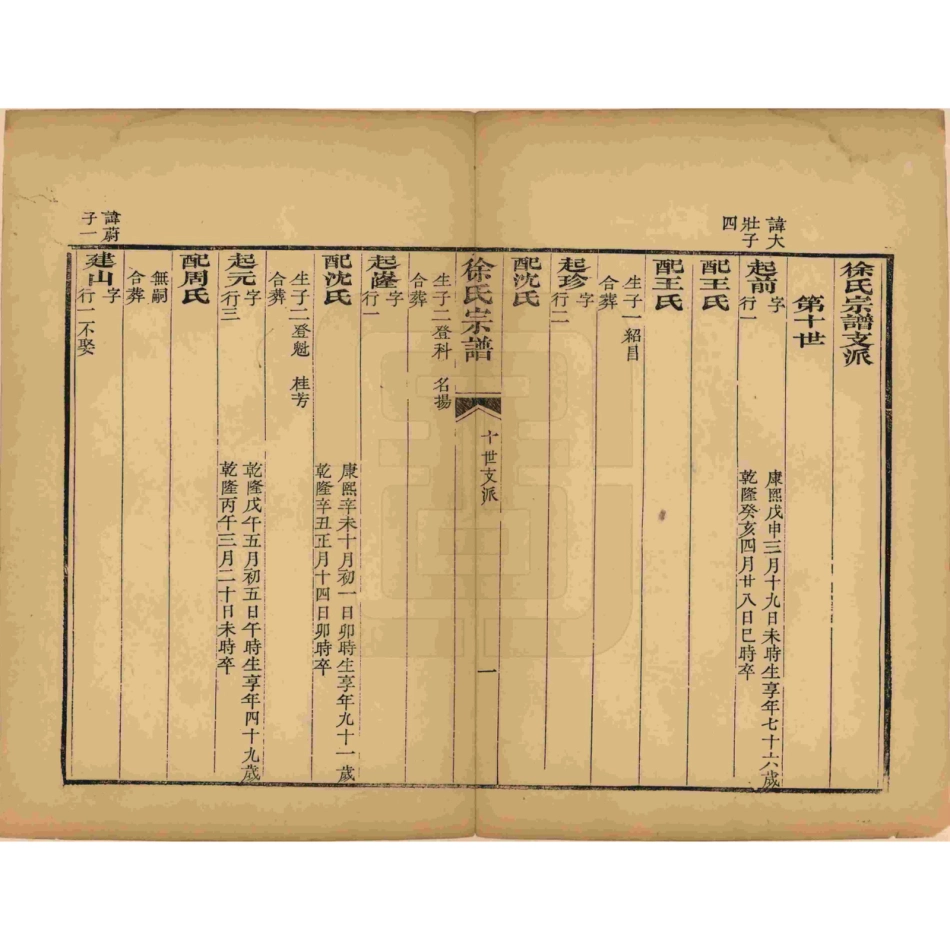 徐氏宗譜支派
第十世
諱大
壯子
四
起前 字
行一
康熙戊申三月十九日未時生享年七十六歲
乾隆癸亥四月廿八日巳時卒
配王氏
配王氏
生子一 紹昌
合葬
起珍 字
行二
配沈氏
徐氏宗譜
十世支派
一
生子二 登科 名揚
合葬
起隆 字
行一
康熙辛未十月初一日卯時生享年九十一歲
乾隆辛丑正月十四日卯時卒
配沈氏
生子二 登魁 桂芳
合葬
起元 字
行三
乾隆戊午五月初五日午時生享年四十九歲
乾隆丙午三月二十日未時卒
配周氏
無嗣
合葬
諱蔚
子一
建山 字
行一 不娶